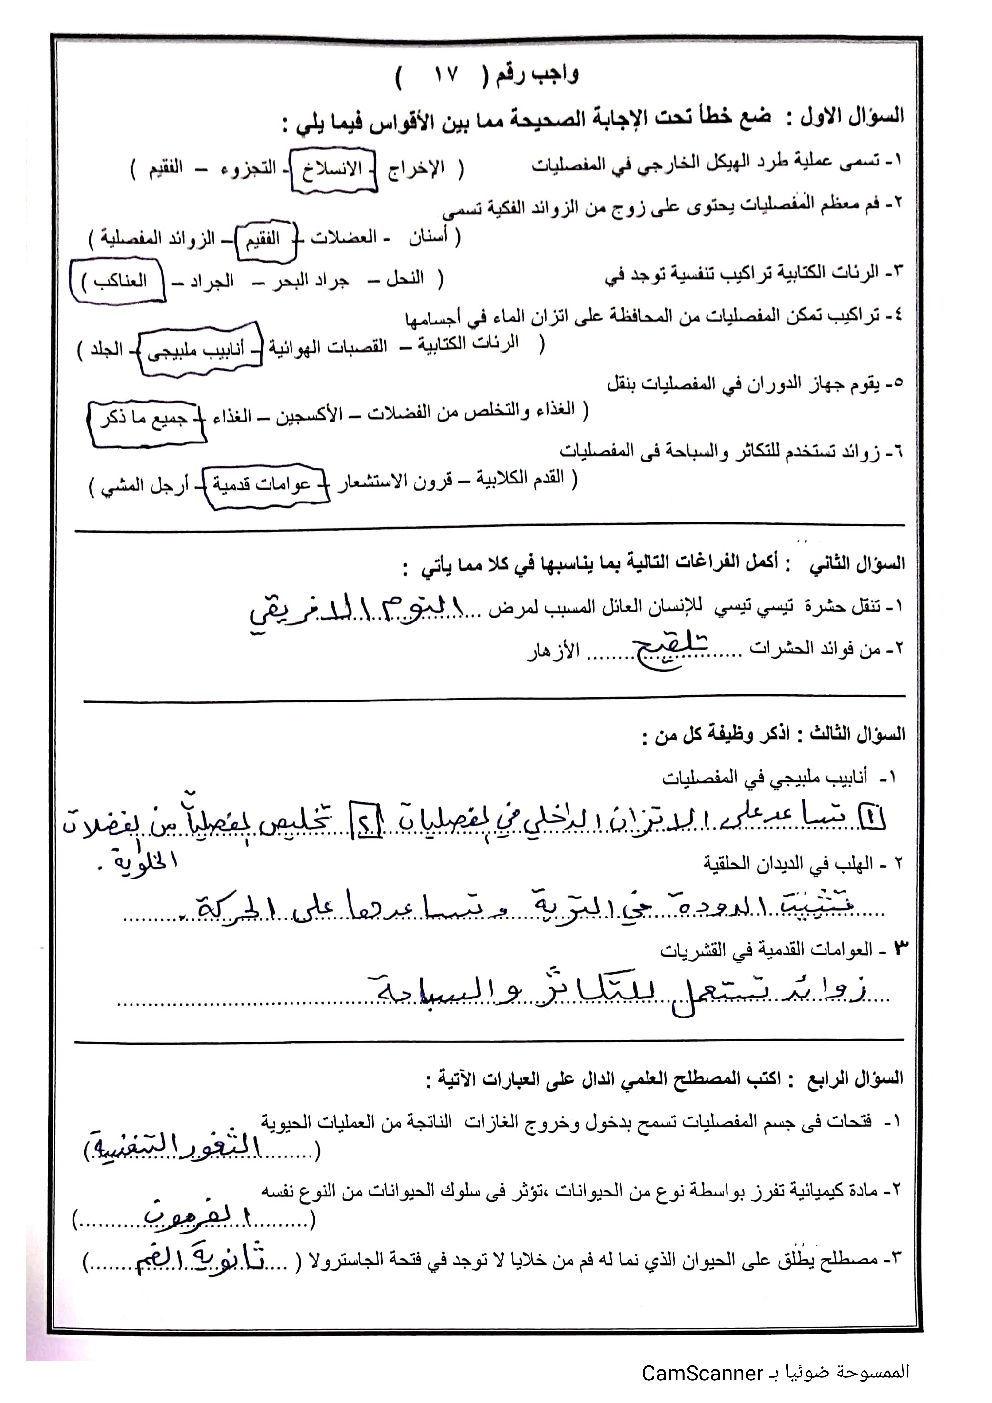 واجب رقم ( ١٧ )
السؤال الاول : ضع خطأ تحت الإجابة الصحيحة مما بين الأقواس فيما يلي :
١- تسمى عملية طرد الهيكل الخارجي في المفصليات ( الإخراج - الانسلاخ - التجزوء – الفقيم )
٢- فم معظم المفصليات يحتوى على زوج من الزوائد الفكية تسمى
( أسنان - العضلات – الفقيم – الزوائد المفصلية )
٣- الرئات الكتابية تراكيب تنفسية توجد في ( النحل – جراد البحر – الجراد – العناكب )
٤- تراكيب تمكن المفصليات من المحافظة على اتزان الماء في أجسامها
( الرئات الكتابية – القصبات الهوائية – أنابيب ملبيجى – الجلد )
٥- يقوم جهاز الدوران في المفصليات بنقل
( الغذاء والتخلص من الفضلات – الأكسجين – الغذاء – جميع ما ذكر
٦- زوائد تستخدم للتكاثر والسباحة فى المفصليات
( القدم الكلابية – قرون الاستشعار – عوامات قدمية – أرجل المشي )
السؤال الثاني : أكمل الفراغات التالية بما يناسبها في كلا مما يأتي :
١- تنقل حشرة تيسي تيسي للإنسان العائل المسبب لمرض ... النوم الافريقي
٢- من فوائد الحشرات ......... تلقيح ........ الأزهار
السؤال الثالث : اذكر وظيفة كل من :
١- أنابيب ملبيجي في المفصليات
[١] تساعد على الاتزان الداخلي في المفصليات [٢] تخليص المفصليات من الفضلات
الخلوية .
٢ - الهلب في الديدان الحلقية
تثبيت الدودة في التربة وتساعدها على الحركة .
٣ - العوامات القدمية في القشريات
زوائد تستعمل للتكاثر والسباحة
السؤال الرابع : اكتب المصطلح العلمي الدال على العبارات الآتية :
١- فتحات فى جسم المفصليات تسمح بدخول وخروج الغازات الناتجة من العمليات الحيوية
(........ الثغور التنفسية)
٢- مادة كيميائية تفرز بواسطة نوع من الحيوانات ،تؤثر فى سلوك الحيوانات من النوع نفسه
(......... الفرمون .........)
٣- مصطلح يُطْلَق على الحيوان الذي نما له فم من خلايا لا توجد في فتحة الجاسترولا ( .... ثانوية الفم ......)
الممسوحة ضوئيا بـ CamScanner